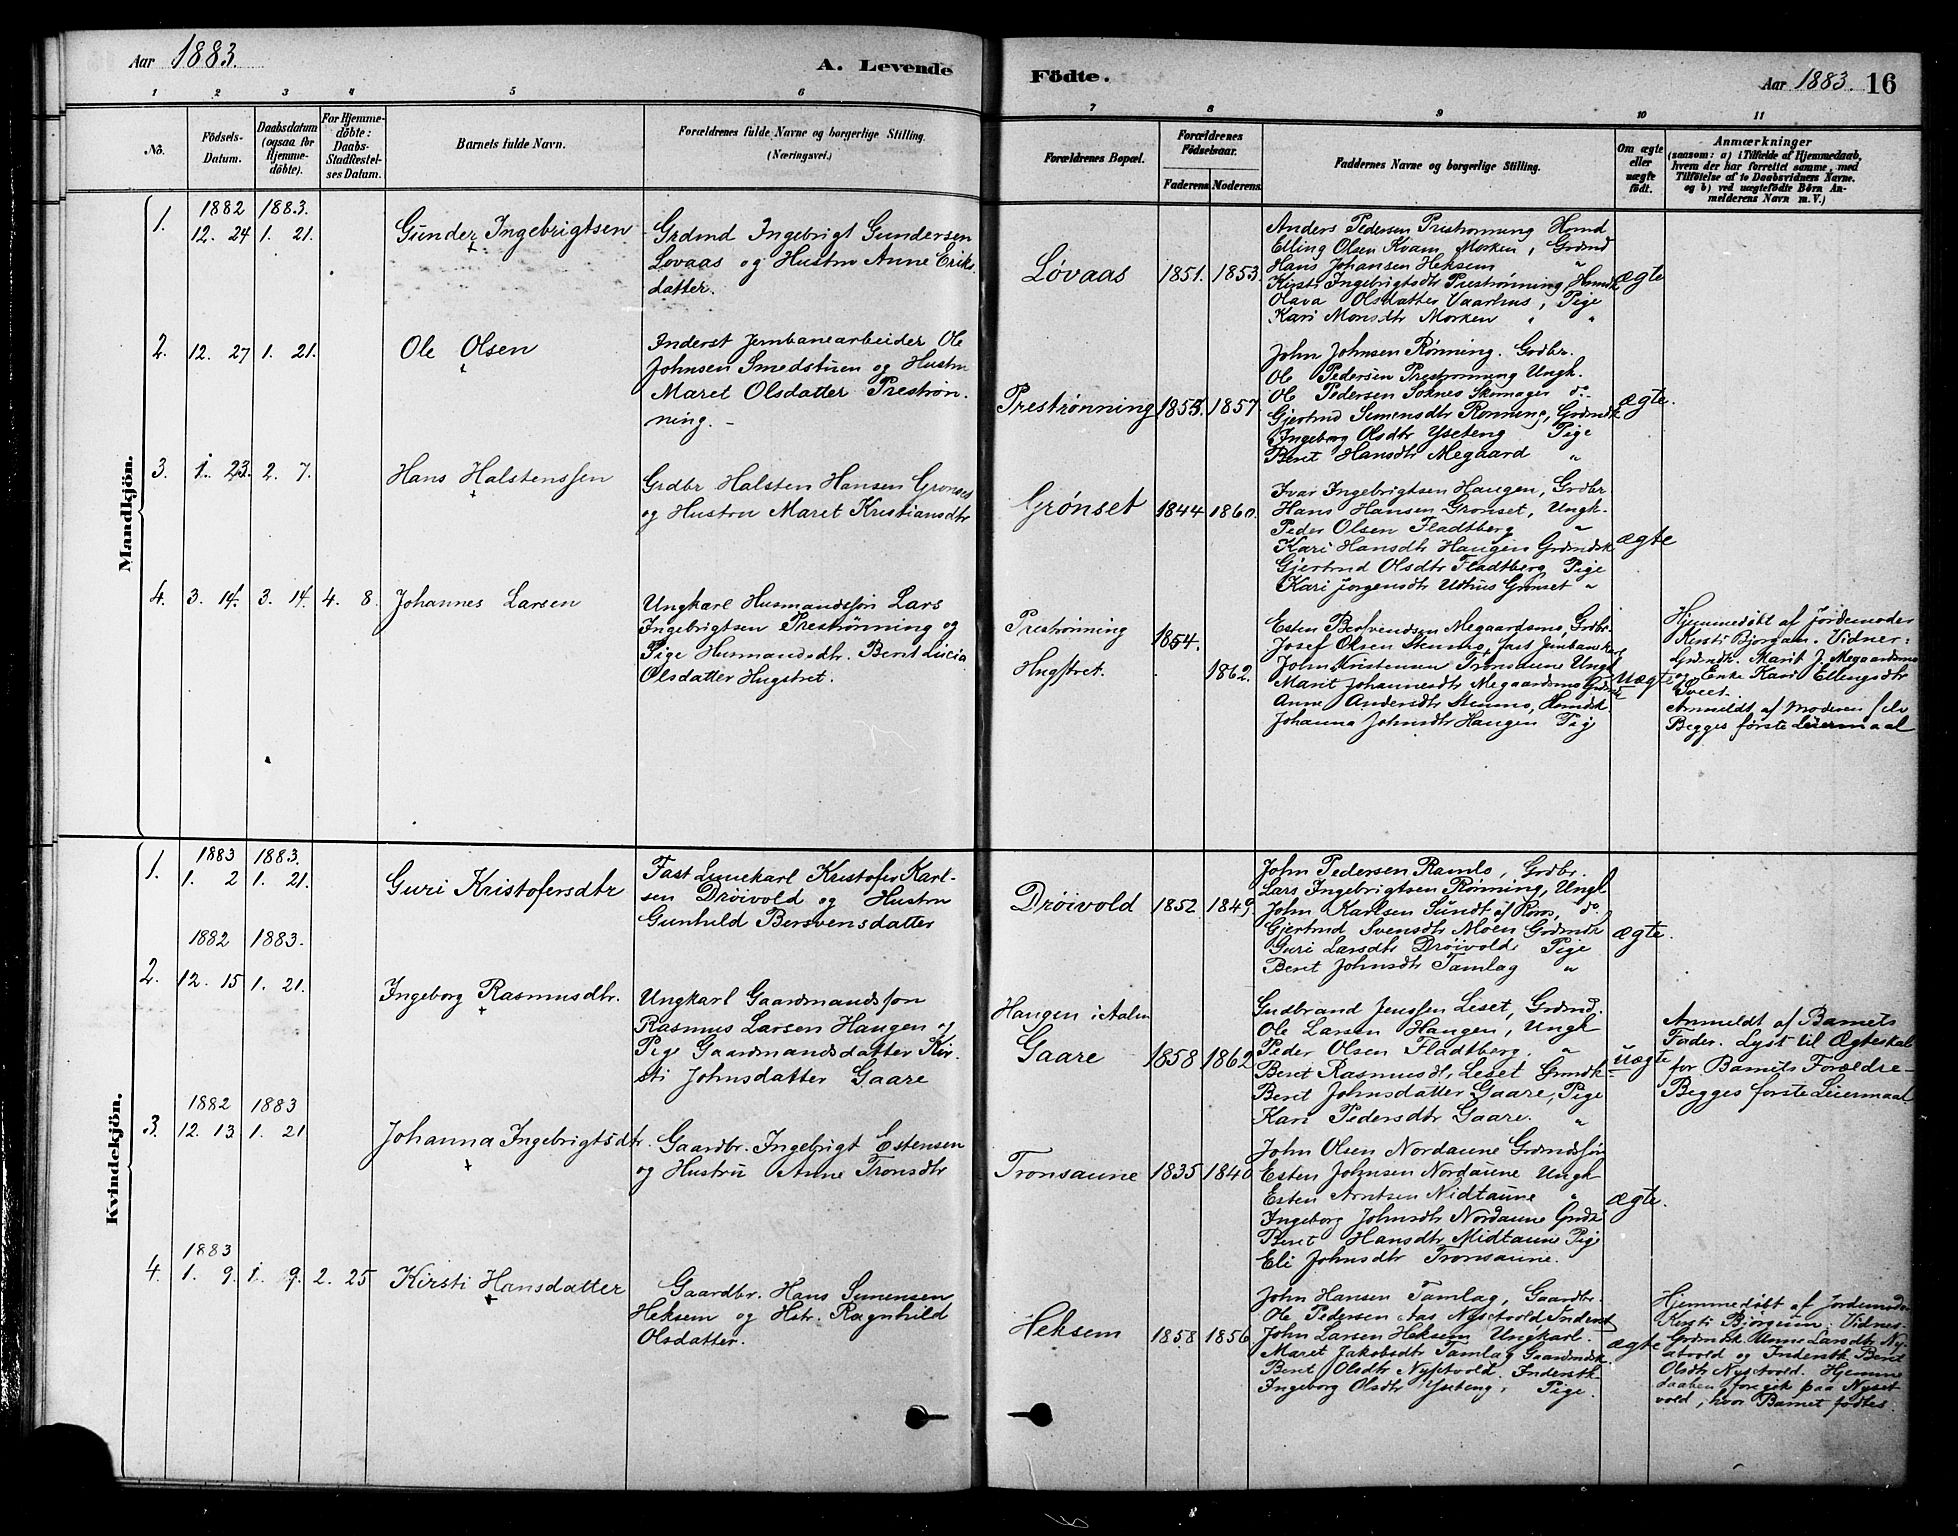 Aar 1883.
A. Levende
1 2 3 4 5 6
No.
Födsels-
Datum.
Daabsdatum
(ogsaa for
Hjemme-
döbte).
For Hjemme-
döbte:
Daabs-
Stadfæstel-
ses Datum.
Barnets fulde Navn.
Forældrenes fulde Navne og borgerlige Stilling.
(Næringsvei.)
Mandkjön.
1.
1882 1883.
12. 24 1. 21.
Gunder Ingebrigtsen
Grdmd Ingebrigt Gundersen
Løvaas og Hustru Anne Eriks
datter.
2.
12. 27 1. 21.
Ole Olsen
Inderst Jernbanearbeider Ole
Johnsen Smedstuen og Hustru
Maret Olsdatter Prestrøn-
ning. -
3.
1. 23. 2. 7.
Hans Halstenssen
Grdbr Halsten Hansen Grønset
og Hustru Maret Kristiansdtr
4.
3. 14. 3. 14. 4. 8.
Johannes Larsen
Ungkarl Husmandssøn Lars
Ingebrigtsen Prestrønning og
Pige Husmandsdtr. Berit Lucia
Olsdatter Hugstret.
Kvindekjön.
1.
1883 1883.
1. 2 1. 21.
Guri Kristofersdtr
Fast Liniekarl Kristofer Karl-
sen Drøivold og Hustru
Gunhild Bersvensdatter
2.
1882 1883.
12. 15 1. 21.
Ingeborg Rasmusdtr.
Ungkarl Gaardmandsson
Rasmus Larsen Haugen og
Pige Gaardmandsdatter Kir-
sti Johnsdatter Gaare
3.
1882 1883
12. 13. 1. 21
Johanna Ingebrigtsdtr.
Gaardbr. Ingebrigt Estensen
og Hustru Anne Tronsdtr
4.
1883
1. 9. 1. 9. 2. 25
Kirsti Hansdatter
Gaardbr. Hans Simensen
Heksem og Hstr. Ragnhild
Olsdatter.
Födte.
Aar 1883. 16
7 8 9 10 11
Forældrenes Bopæl.
Forældrenes
Födselsaar.
Faderens Moderens
Faddernes Navne og borgerlige Stilling.
Om ægte
eller
uægte
födt.
Anmærkninger
(saasom: a) i Tilfælde af Hjemmedaab,
hvem der har forrettet samme, med
Tilföielse af to Daabsvidners Navne.
og b) ved uægtefödte Börn An-
melderens Navn m. V.)
Løvaas 1851. 1853.
Anders Pedersen Prestrønning Hsmd
Elling Olsen Kvam Morken, Grdmd
Hans Johansen Heksem "
Kirsti Ingebrigtsdtr Prestrønning, Hsmdk
Olava Olsdatter Vaarhus, Pige
Kari Monsdtr Morken " "
ægte
Prestrønning 1855. 1857.
John Johnsen Rønning. Grdbr.
Ole Pedersen Prestrønning Ungk.
Ole Pedersen Soknes Skomager do.
Gjertrud Simensdtr Rønning, Grdmdk
Ingeborg Olsdtr Ysteeng Pige
Berit Hansdtr Megaard "
ægte.
Grønset 1844 1860.
Ivar Ingebrigtsen Haugen, Grdbr
Hans Hansen Grønset, Ungk.
Peder Olsen Fladtberg "
Kari Hansdtr Haugen Grdmdsk
Gjertrud Olsdtr Fladtberg Pige
Kari Jorgensdtr Udhus Grønset "
ægte
Prestrønning
Hugstret.
1854. 1862.
Esten Bersvendsen Megaardsmo, Grdbr.
Josef Olsen Stenmo, fast Jernbanekarl
John Kristensen Tronsaune Ungk
Marit Johannesdtr Megaardsmo Grdmdk
Anne Andersdtr Stenmo, Hsmdsk
Johanna Johnsdtr Haugen Pige
Uægte
Hjemmedøbt af Jordemoder
Kirsti Bjørgum. Vidner:
Grdmdk. Marit J. Megaardsmo
og Enke Kari Ellingsdtr
Sveet.
Anmeldt af Moderen selv
Begges første Leiermaal
Drøivold 1852. 1849.
John Pedersen Ramlo, Grdbr.
Lars Ingebrigtsen Rønning, Ungk
John Karlsen Sundt af Røros, do.
Gjertrud Svensdtr Moen Grdmdk
Guri Larsdtr Drøivold Pige
Berit Johnsdtr Tamlag "
ægte.
Haugen i Aalen
Gaare 1858 1862
Gudbrand Jenssen Leset, Grdmd.
Ole Larsen Haugen, Ungk
Peder Olsen Fladtberg. "
Beret Rasmusdt, Leset Grdmdk
Berit Johnsdatter Gaare, Pige
Kari Pedersdtr Gaare. "
uægte
Anmeldt af Barnets
Fader. Lyst til Ægteskab
for Barnets Forældre-
Begges første Leiermaal.
Tronsaune 1835 1840
John Olsen Nordaune Grdmdssøn
Esten Johnsen Nordaune Ungk
Esten Arntsen Midtaune "
Ingeborg Johnsdtr Nordaune Grdk
Beret Hansdtr Midtaune Pige
Eli Johnsdtr Tronsaune.
ægte.
Heksem 1858. 1856
John Hansen Tamlag, Gaardbr.
Ole Pedersen Nysetvold Inderst
John Larsen Heksem Ungkarl.
Maret Jakobsdtr Tamlag Gaardmdsk.
Beret Olsdtr Nysetvold. Inderstk
Ingeborg Olsdtr Ysteeng, Pige.
ægte
Hjemmedøbt af Jordemoder
Kirsti Bjørgum: Vidnes-
Grdmdsk Anne Larsdtr Ny-
setvold og Inderstk Beret
Olsdtr Nysetvold. Hjemme
daaben foregik paa Nyset
vold, hvor Barnet fødtes